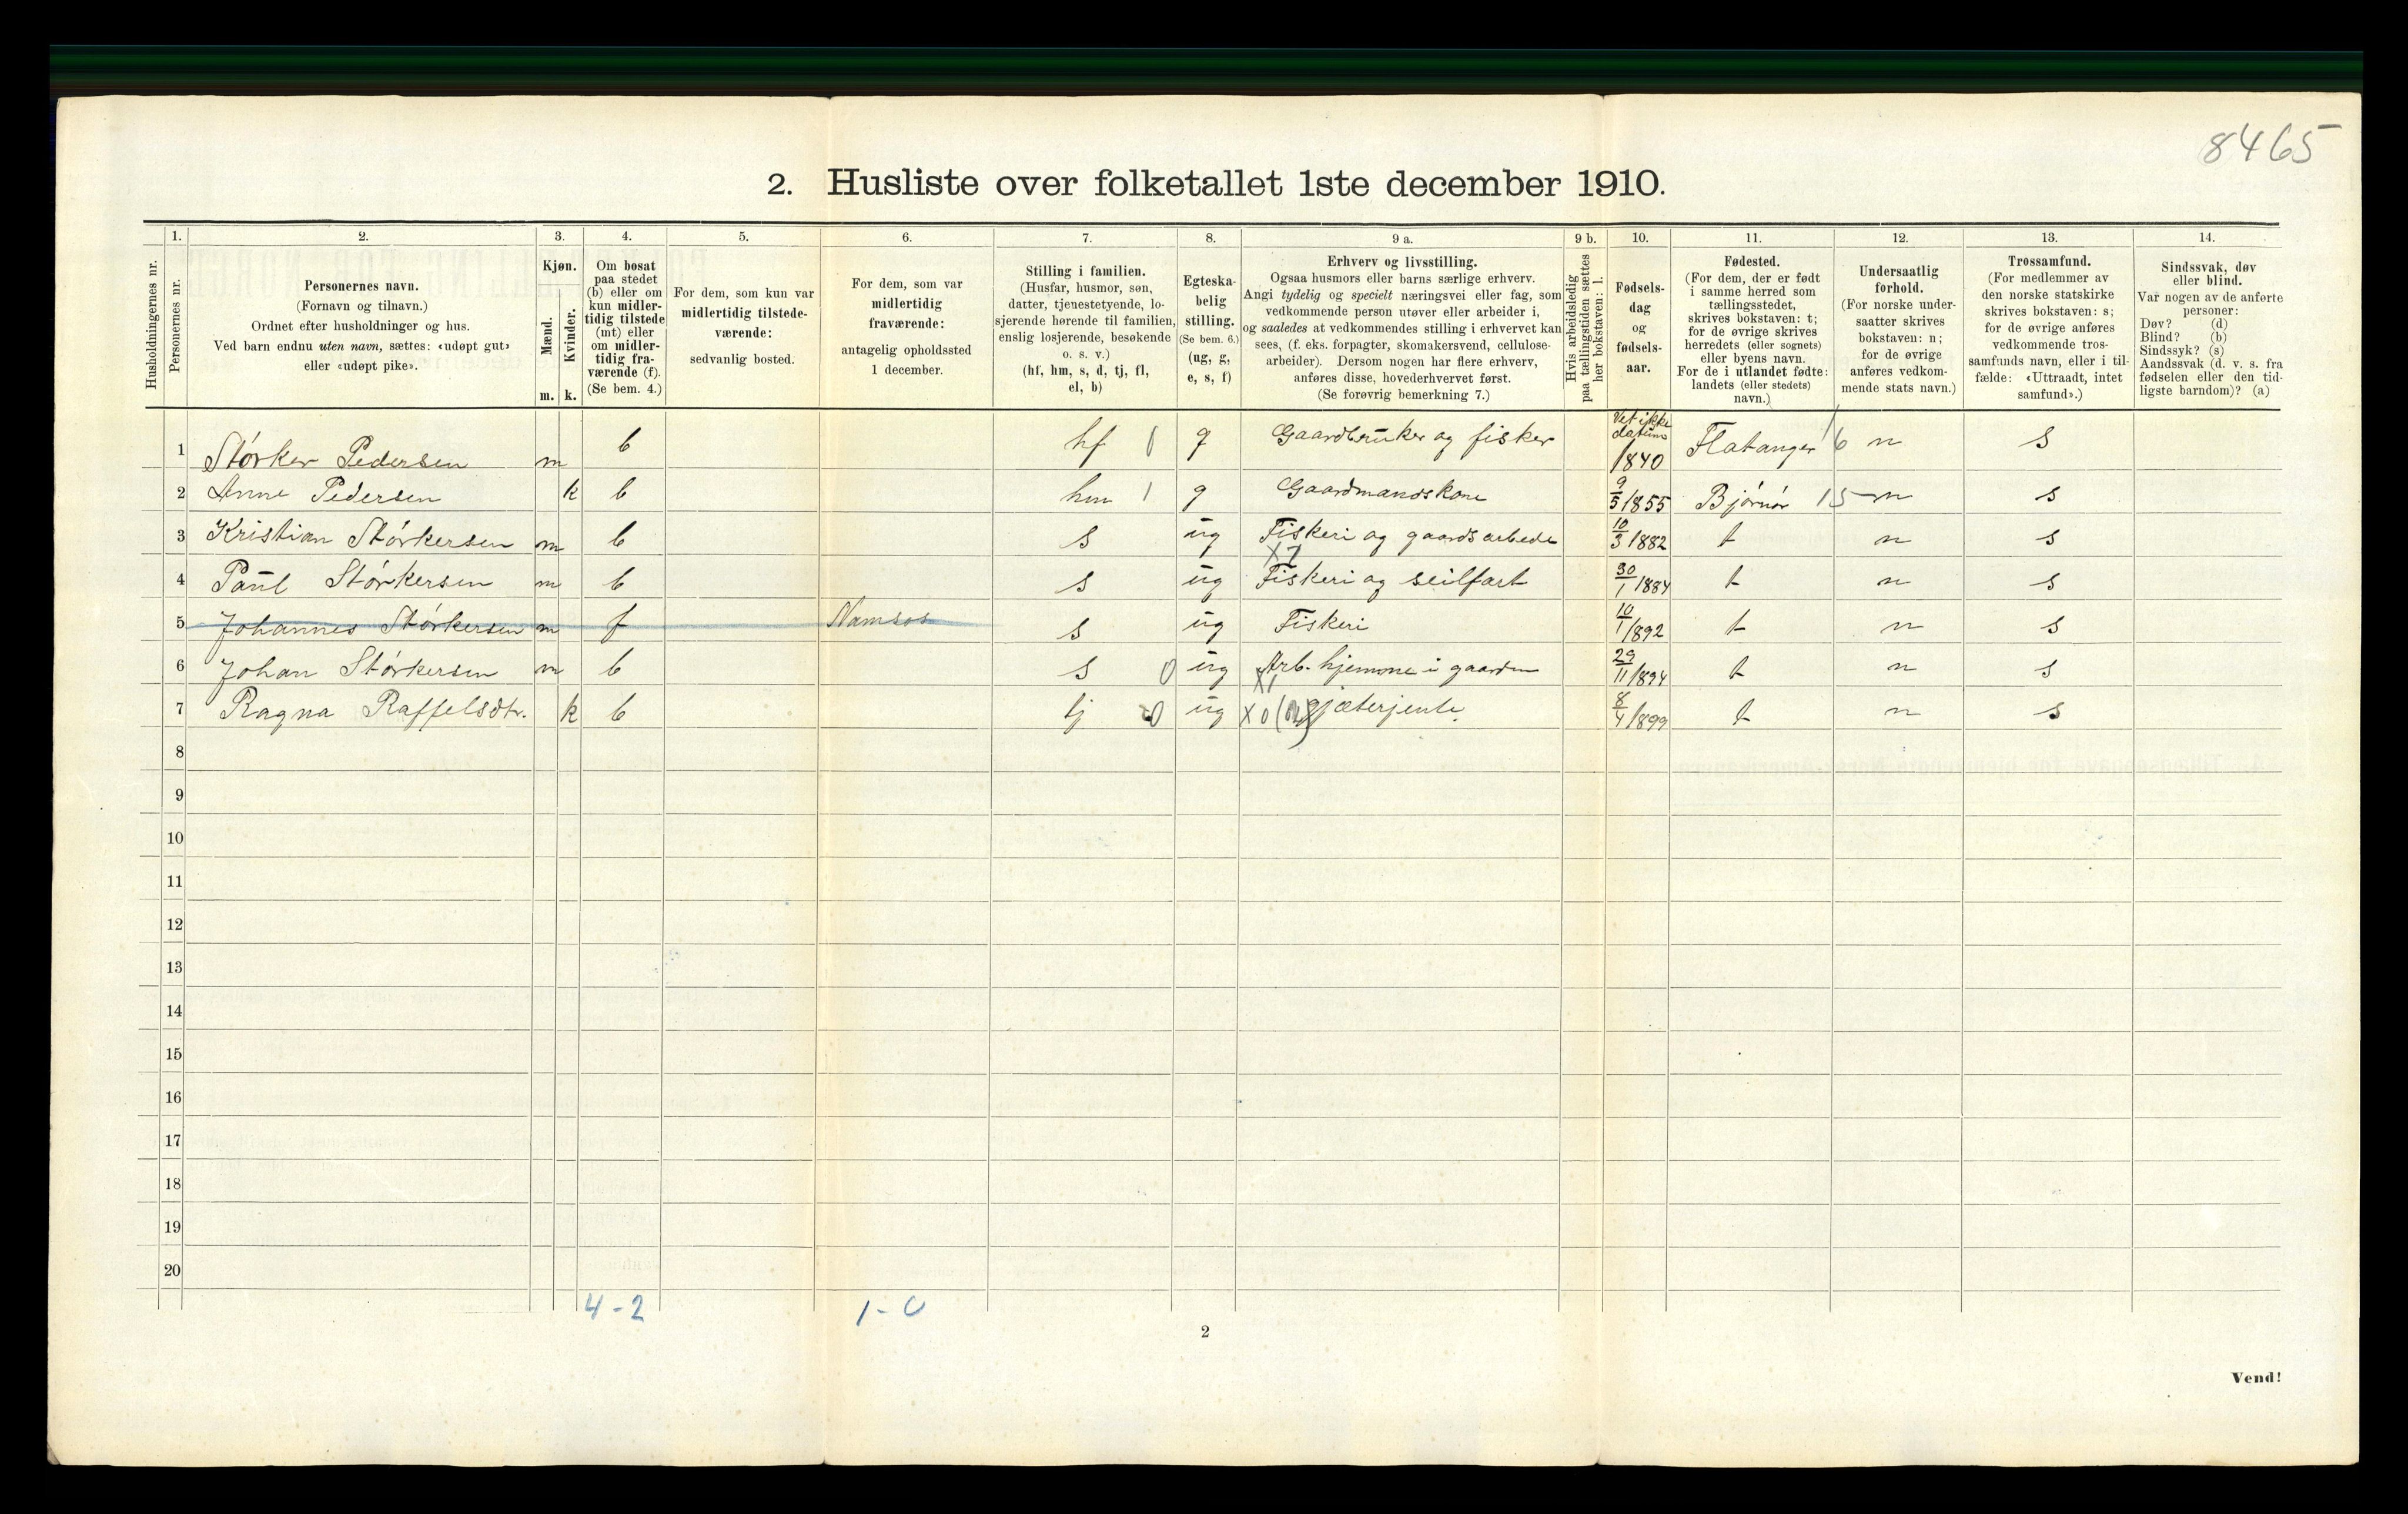 8465
2. Husliste over folketallet 1ste december 1910.
1. 2. 3. 4. 5. 6. 7. 8. 9 a. 9 b. 10. 11. 12. 13. 14.
Husholdningernes nr.
Personernes nr.
Personernes navn.
(Fornavn og tilnavn.)
Ordnet efter husholdninger og hus.
Ved barn endnu uten navn, sættes: «udøpt gut»
eller «udøpt pike».
Kjøn.
Mænd.
Kvinder.
m. k.
Om bosat
paa stedet
(b) eller om
kun midler-
tidig tilstede
(mt) eller
om midler-
tidig fra-
værende (f).
(Se bem. 4.)
For dem, som kun var
midlertidig tilstede-
værende:
sedvanlig bosted.
For dem, som var
midlertidig
fraværende:
antagelig opholdssted
1 december.
Stilling i familien.
(Husfar, husmor, søn,
datter, tjenestetyende, lo-
sjerende hørende til familien,
enslig losjerende, besøkende
o. s. v.)
(hf, hm, s, d, tj, fl,
el, b)
Egteska-
belig
stilling.
(Se bem. 6.)
(ug, g,
e, s, f)
Erhverv og livsstilling.
Ogsaa husmors eller barns særlige erhverv.
Angi tydelig og specielt næringsvei eller fag, som
vedkommende person utøver eller arbeider i,
og saaledes at vedkommendes stilling i erhvervet kan
sees, (f. eks. forpagter, skomakersvend, cellulose-
arbeider). Dersom nogen har flere erhverv,
anføres disse, hovederhvervet først.
(Se forøvrig bemerkning 7.)
Hvis arbeidsledig
paa tællingstiden sættes
her bokstaven: l.
Fødsels-
dag
og
fødsels-
aar.
Fødested.
(For dem, der er født
i samme herred som
tællingsstedet,
skrives bokstaven: t;
for de øvrige skrives
herredets (eller sognets)
eller byens navn.
For de i utlandet fødte:
landets (eller stedets)
navn.)
Undersaatlig
forhold.
(For norske under-
saatter skrives
bokstaven: n;
for de øvrige
anføres vedkom-
mende stats navn.)
Trossamfund.
(For medlemmer av
den norske statskirke
skrives bokstaven: s;
for de øvrige anføres
vedkommende tros-
samfunds navn, eller i til-
fælde: «Uttraadt, intet
samfund».)
Sindssvak, døv
eller blind.
Var nogen av de anførte
personer:
Døv? (d)
Blind? (b)
Sindssyk? (s)
Aandssvak (d. v. s. fra
fødselen eller den tid-
ligste barndom)? (a)
1 Størker Pedersen m b hf 1 g Gaardbruker og fisker Vet ikke datum 1840 Flatanger 16 n s
2 Anne Pedersen k b hm 1 g Gaardmandskone 9/5 1855 Bjørnør 15 n s
3 Kristian Størkersen m b s ug Fiskeri og gaardsarbede 10/3 1882 t n s
X7
4 Paul Størkersen m b s ug Fiskeri og seilfart 30/1 1884 t n s
5 Johannes Størkersen m f Namsos s ug Fiskeri 10/1 1892 t n s
6 Johan Størkersen m b s 0 ug Arb. hjemme i gaarden 29/11 1894 t n s
X1
7 Ragna Raffelsdtr. k b tj 0 ug X0 gjæterjente 8/4 1899 t n s
8
9
10
11
12
13
14
15
16
17
18
19
20
4-2 1-0
2
Vend!